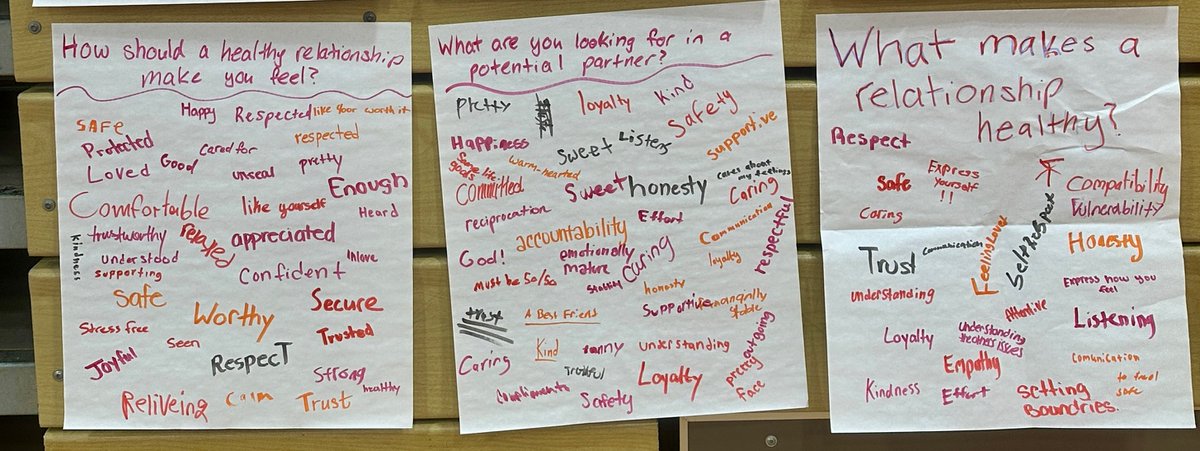 How should a healthy relationship
make you feel?
Happy
Respected
like your worth it
SAFE
respected
Protected
Cared for
Good
pretty
Loved
unseal
Enough
Comfortable
like yourself
Heard
Kindness
trustworthy
relaxed
appreciated
understood
inlove
supporting
Confident
Safe
Secure
Worthy
Stress free
Trusted
Seen
Joyful
RespecT
Strong
healthy
Reliveing
Calm
Trust
What are you looking for in a
potential partner?
Pretty
loyalty
Kind
Safety
Happiness
Sweet
Listens
supportive
Same life
goals
warm-hearted
Cares about
my feelings
Committed
Sweet
honesty
Caring
reciprocation
Effort
Communication
respectful
accountability
God!
emotionally
mature
Caring
loyalty
Must be 50/50
Stability
honesty
trust
A Best Friend
Supportive
stable
outgoing
Kind
funny
understanding
Caring
Truthful
Loyalty
pretty
face
Compliments
Safety
What makes a
relationship
healthy?
Respect
Safe
Express
yourself
!!
Compatibility
Vulnerability
Caring
Feeling Loved
Self Respect
Trust
Communication
Honesty
understanding
Attentive
Express how you
feel
Loyalty
Understanding
Listening
Empathy
Comunication
Kindness
Effort
Setting
Boundries.
to feel
safe